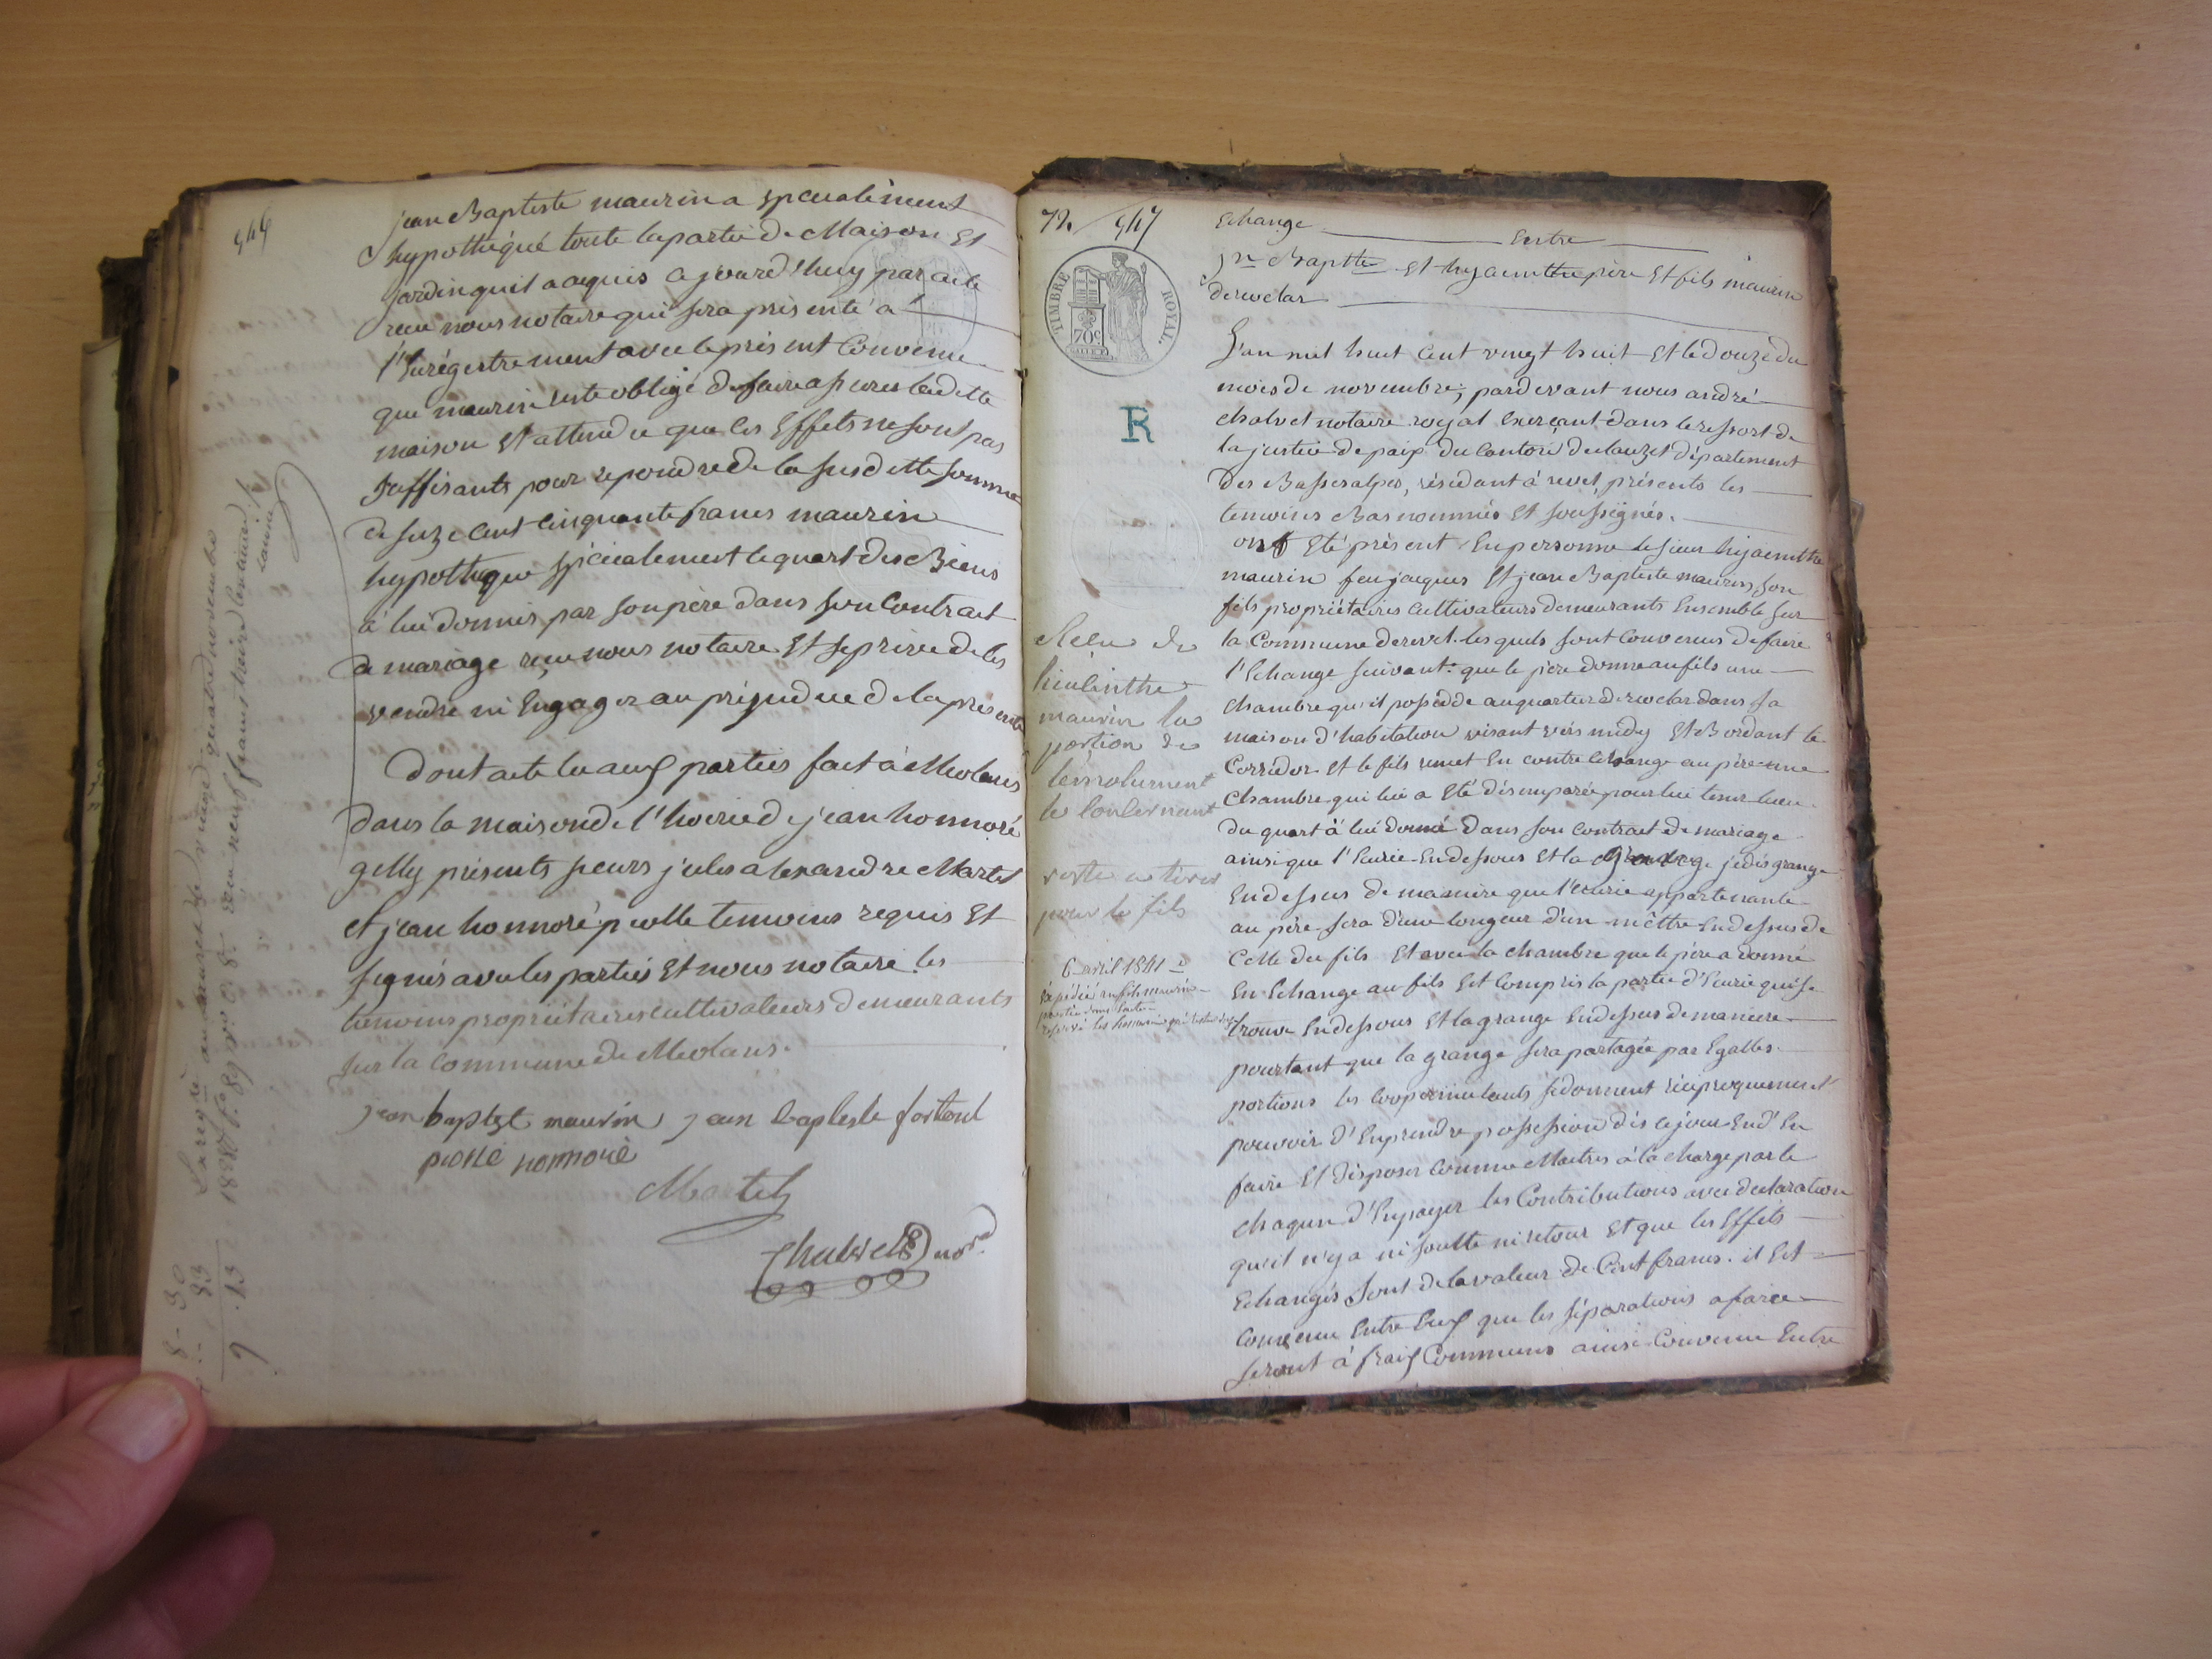 jean Baptiste maurin a specialement
hypothéqué toute la partie de Maison Et
jardin quil a acquis ajourd'huy par acte
reçu nous notaire qui sera présenté a
l'Enregestrement avec le présent Convenu
que maurin reste obligé de faire assurer ladette
maison Et attendu que les Effets ne sont pas
suffisants pour repondre de la susdette somme
de seize Cent Cinquante francs maurin
hypotheque spécialement le quart des Biens
à lui donnés par son père dans son Contrait
de mariage reçu nous notaire Et se prive de les
vendre ni Engager au préjudice de la présente
Dont acte lu aux parties fait à Meolans
dans la maison de l'hoirie de jean honnoré
gilly présents sieurs jules alexandre Martel
et jean honnoré piolle temoins requis Et
signés avec les parties Et nous notaire. les
témoins propriétaires Cultivateurs demeurants
sur la Commune de Meolans.
jean baptist maurin jean baptiste fortoul
piolle honnoré
Martel
Chalvet not
72. 547
TIMBRE ROYAL.
70c
R
Echange Entre
jn Baptte Et hyacinthe père Et fils maurin
de rioclar
L'an mil huit Cent vingt huit Et le douze du
mois de novembre; pardevant nous andré
chalvet notaire royal Exerçant dans le ressort de
la justice de paix du Canton du lauzet département
des Basses alpes, résidant à revel, présents les
temoins Bas nommés Et soussignés.
ont Eté présent En personne le sieur hyacinthe
maurin feu jacques Et jean Baptiste maurin son
fils propriétaires Cultivateurs demeurants Ensemble sur
la Commune de revel. les quels sont Convenus de faire
l'Echange suivant: que le père donne au fils une
chambre qu'il possède au quartier de rioclar dans sa
maison d'habitation visant vers midy Et Bordant le
Corridor Et le fils remet En contre Echange au père une
Chambre qui lui a Eté désemparée pour lui tenir lieu
du quart à lui donné dans son Contrait de mariage
ainsi que l'Ecurie En dessous Et la je dis grange
En dessus de manière que l'ecurie appartenante
au père sera d'une longeur d'un mêttre En dessus de
Celle du fils Et avec la chambre que le père a donné
En Echange au fils Est Compris la partie d'Ecurie qui se
trouve En dessous Et la grange En dessus de maniere
pourtant que la grange sera partagée par Egalles
portions les Coopermutants se donnent réciproquement
pouvoir d'En prendre possession dès ce jour En d'En
faire Et disposer Comme Maitres à la charge par le
chaqun d'En payer les Contributions avec declaration
qu'il n'y a ni soulte ni retour Et que les Effets
Echangés sont de la valeur de Cent francs. il Est
Convenu Entre Eux que les séparations a faire
seront à fraix Communs ainsi Convenu Entre
Reçu de
maurin la
portion de
l'émolument
le Concernant
reste a tirer
pour le fils
6 avril 1841